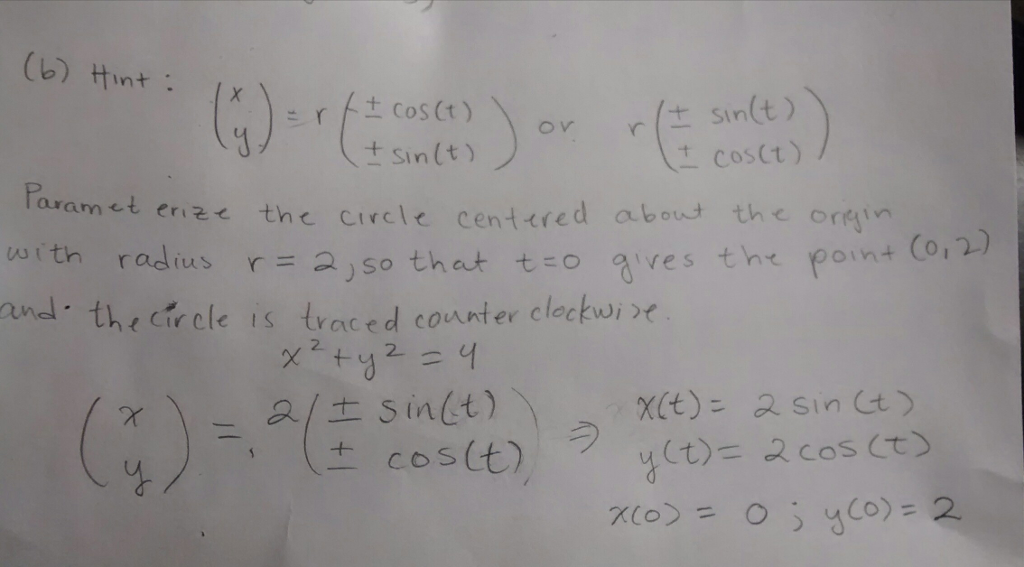 (b) Hint :
(x y) = r (± cos(t) ± sin(t)) or r (± sin(t) ± cos(t))
Parameterize the circle centered about the origin
with radius r = 2, so that t=0 gives the point (0,2)
and the circle is traced counter clockwise.
x² + y² = 4
(x y) = 2 (± sin(t) ± cos(t)) ⇒ x(t) = 2 sin(t)
y(t) = 2 cos(t)
x(0) = 0 ; y(0) = 2